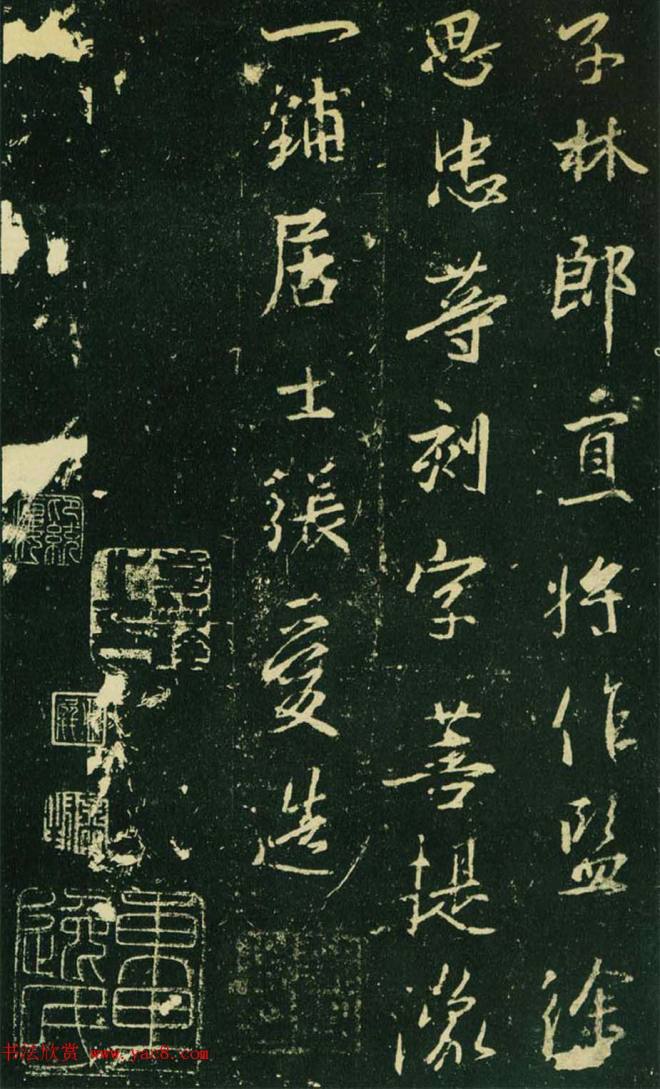 子林郎直將作監徐
思忠等刻字菩提像
一鋪居士張愛造
书法欣赏 www.yac8.com